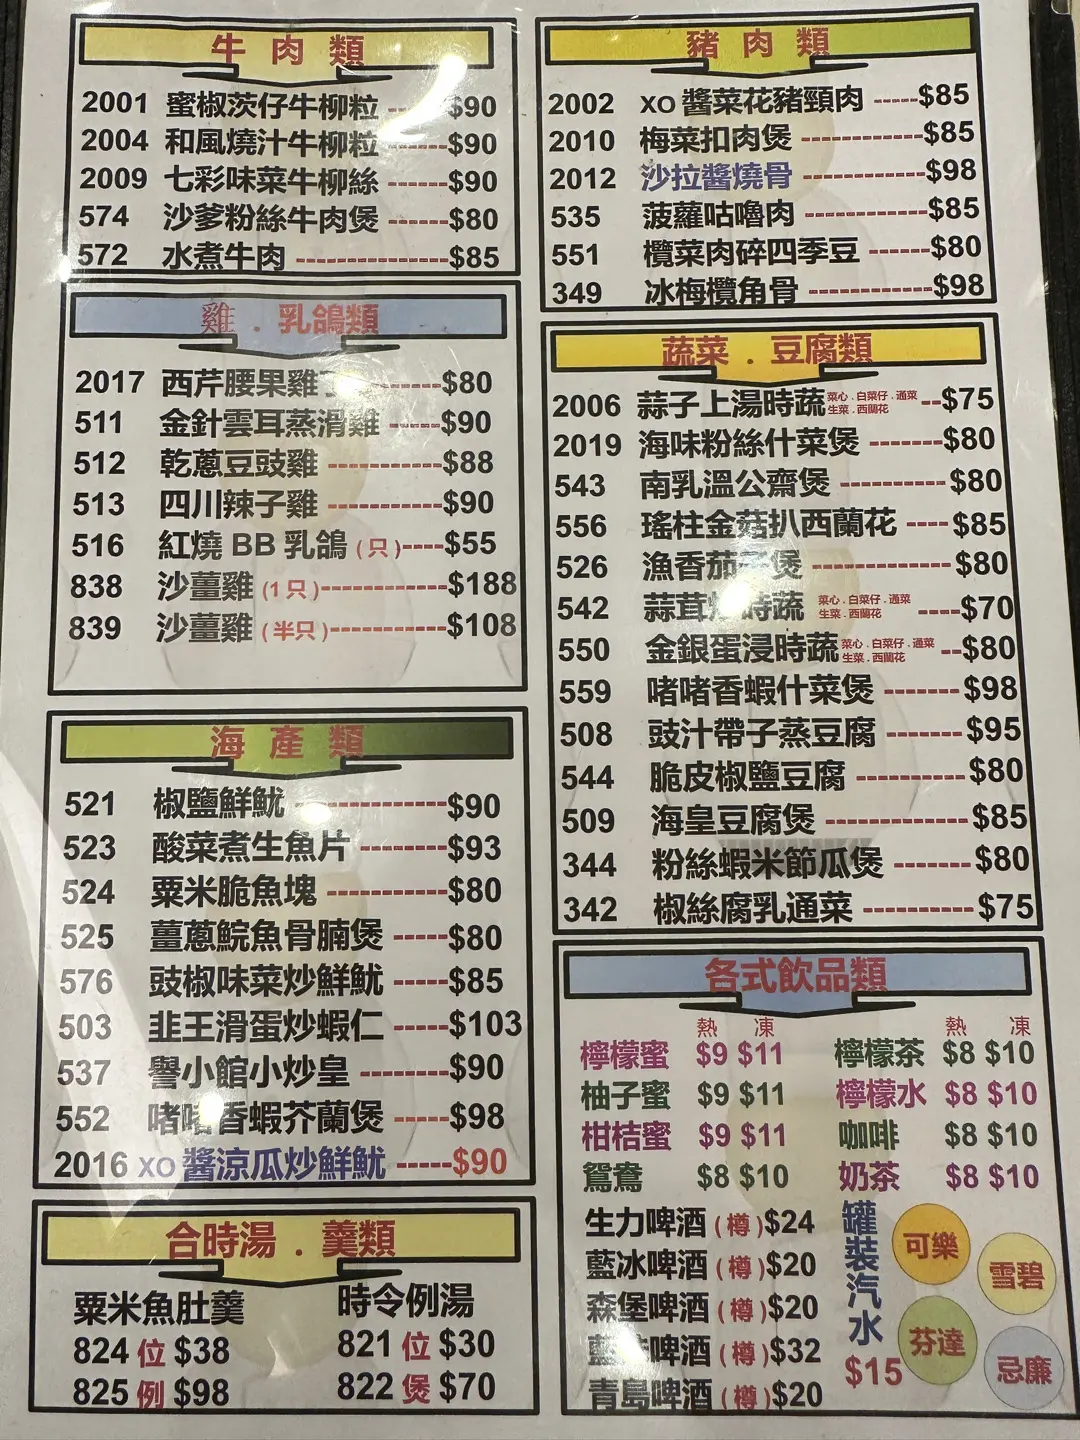 牛肉類
2001 蜜椒茨仔牛柳粒 ---$90
2004 和風燒汁牛柳粒 -----$90
2009 七彩味菜牛柳絲 ------$90
574 沙爹粉絲牛肉煲 ------$80
572 水煮牛肉 ---------------$85
雞．乳鴿類
2017 西芹腰果雞 -------$80
511 金針雲耳蒸滑雞 -----$90
512 乾蔥豆豉雞 -----------$88
513 四川辣子雞 -----------$90
516 紅燒 BB 乳鴿 (只)----$55
838 沙薑雞 (1只)------------$188
839 沙薑雞 (半只)-----------$108
海產類
521 椒鹽鮮魷 --------------$90
523 酸菜煮生魚片 --------$93
524 粟米脆魚塊 -----------$80
525 薑蔥鯇魚骨腩煲 -----$80
576 豉椒味菜炒鮮魷 -----$85
503 韭王滑蛋炒蝦仁 -----$103
537 譽小館小炒皇 --------$90
552 啫啫香蝦芥蘭煲 -----$98
2016 XO 醬涼瓜炒鮮魷 -----$90
合時湯．羹類
粟米魚肚羹
824 位 $38
825 例 $98
時令例湯
821 位 $30
822 煲 $70
豬肉類
2002 XO 醬菜花豬頸肉 -----$85
2010 梅菜扣肉煲 -----------$85
2012 沙拉醬燒骨 -----------$98
535 菠蘿咕嚕肉 -----------$85
551 欖菜肉碎四季豆 -----$80
349 冰梅欖角骨 -----------$98
蔬菜．豆腐類
2006 蒜子上湯時蔬 菜心．白菜仔．通菜 --$75
生菜．西蘭花
2019 海味粉絲什菜煲 ------$80
543 南乳溫公齋煲 ---------$80
556 瑤柱金菇扒西蘭花 ----$85
526 漁香茄子煲 ------------$80
542 蒜茸炒時蔬 菜心．白菜仔．通菜 ----$70
生菜．西蘭花
550 金銀蛋浸時蔬 菜心．白菜仔．通菜 --$80
生菜．西蘭花
559 啫啫香蝦什菜煲 ------$98
508 豉汁帶子蒸豆腐 ------$95
544 脆皮椒鹽豆腐 ---------$80
509 海皇豆腐煲 ------------$85
344 粉絲蝦米節瓜煲 ------$80
342 椒絲腐乳通菜 ---------$75
各式飲品類
熱 凍
檸檬蜜 $9 $11
柚子蜜 $9 $11
柑桔蜜 $9 $11
鴛鴦 $8 $10
熱 凍
檸檬茶 $8 $10
檸檬水 $8 $10
咖啡 $8 $10
奶茶 $8 $10
生力啤酒 (樽)$24
藍冰啤酒 (樽)$20
森堡啤酒 (樽)$20
藍 啤酒 (樽)$32
青島啤酒 (樽)$20
罐裝汽水
$15
可樂
雪碧
芬達
忌廉